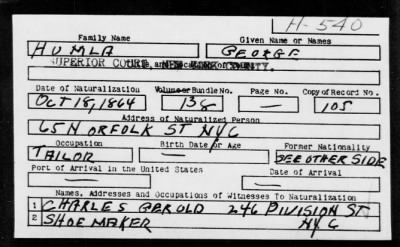 H-540
Family Name Given Name or Names
HUMLA GEORGE
SUPERIOR COURT, NEW YORK COUNTY.
Date of Naturalization Volume or Bundle No. Page No. Copy of Record No.
OCT 18, 1864 138 — 105
Address of Naturalized Person
65 NORFOLK ST NYC
Occupation Birth Date or Age Former Nationality
TAILOR — SEE OTHER SIDE
Port of Arrival in the United States Date of Arrival
— —
Names, Addresses and Occupations of Witnesses To Naturalization
1 CHARLES GEROLD 246 DIVISION ST
2 SHOEMAKER NYC